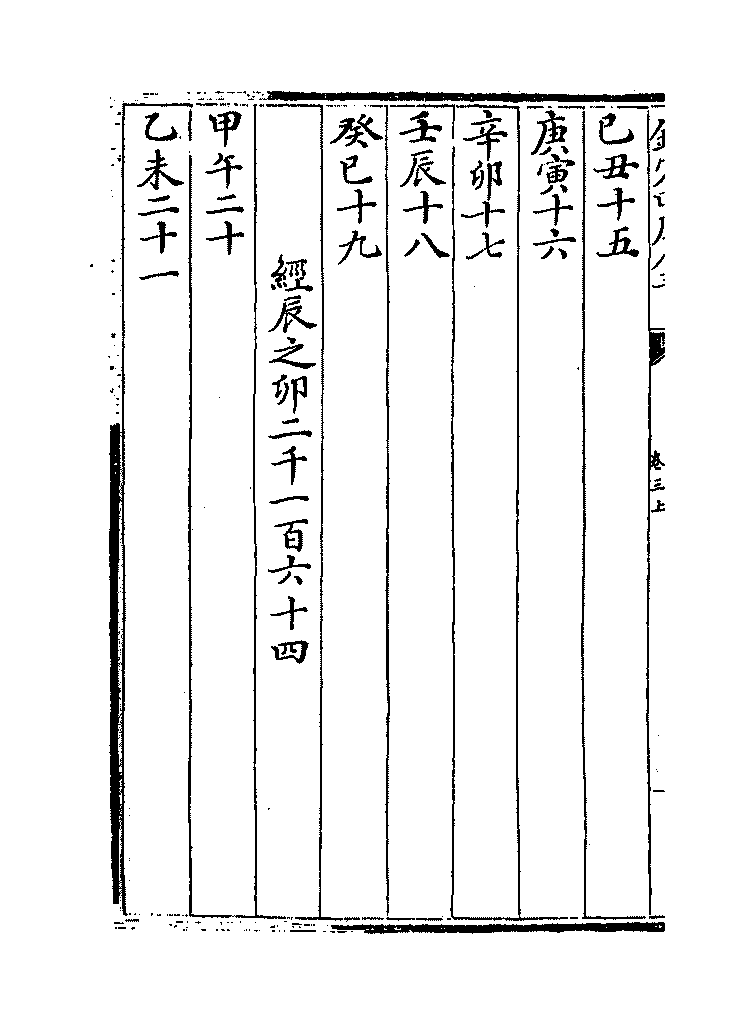 卷三上
己丑十五
庚寅十六
辛卯十七
壬辰十八
癸巳十九
經辰之卯二千一百六十四
甲午二十
乙未二十一